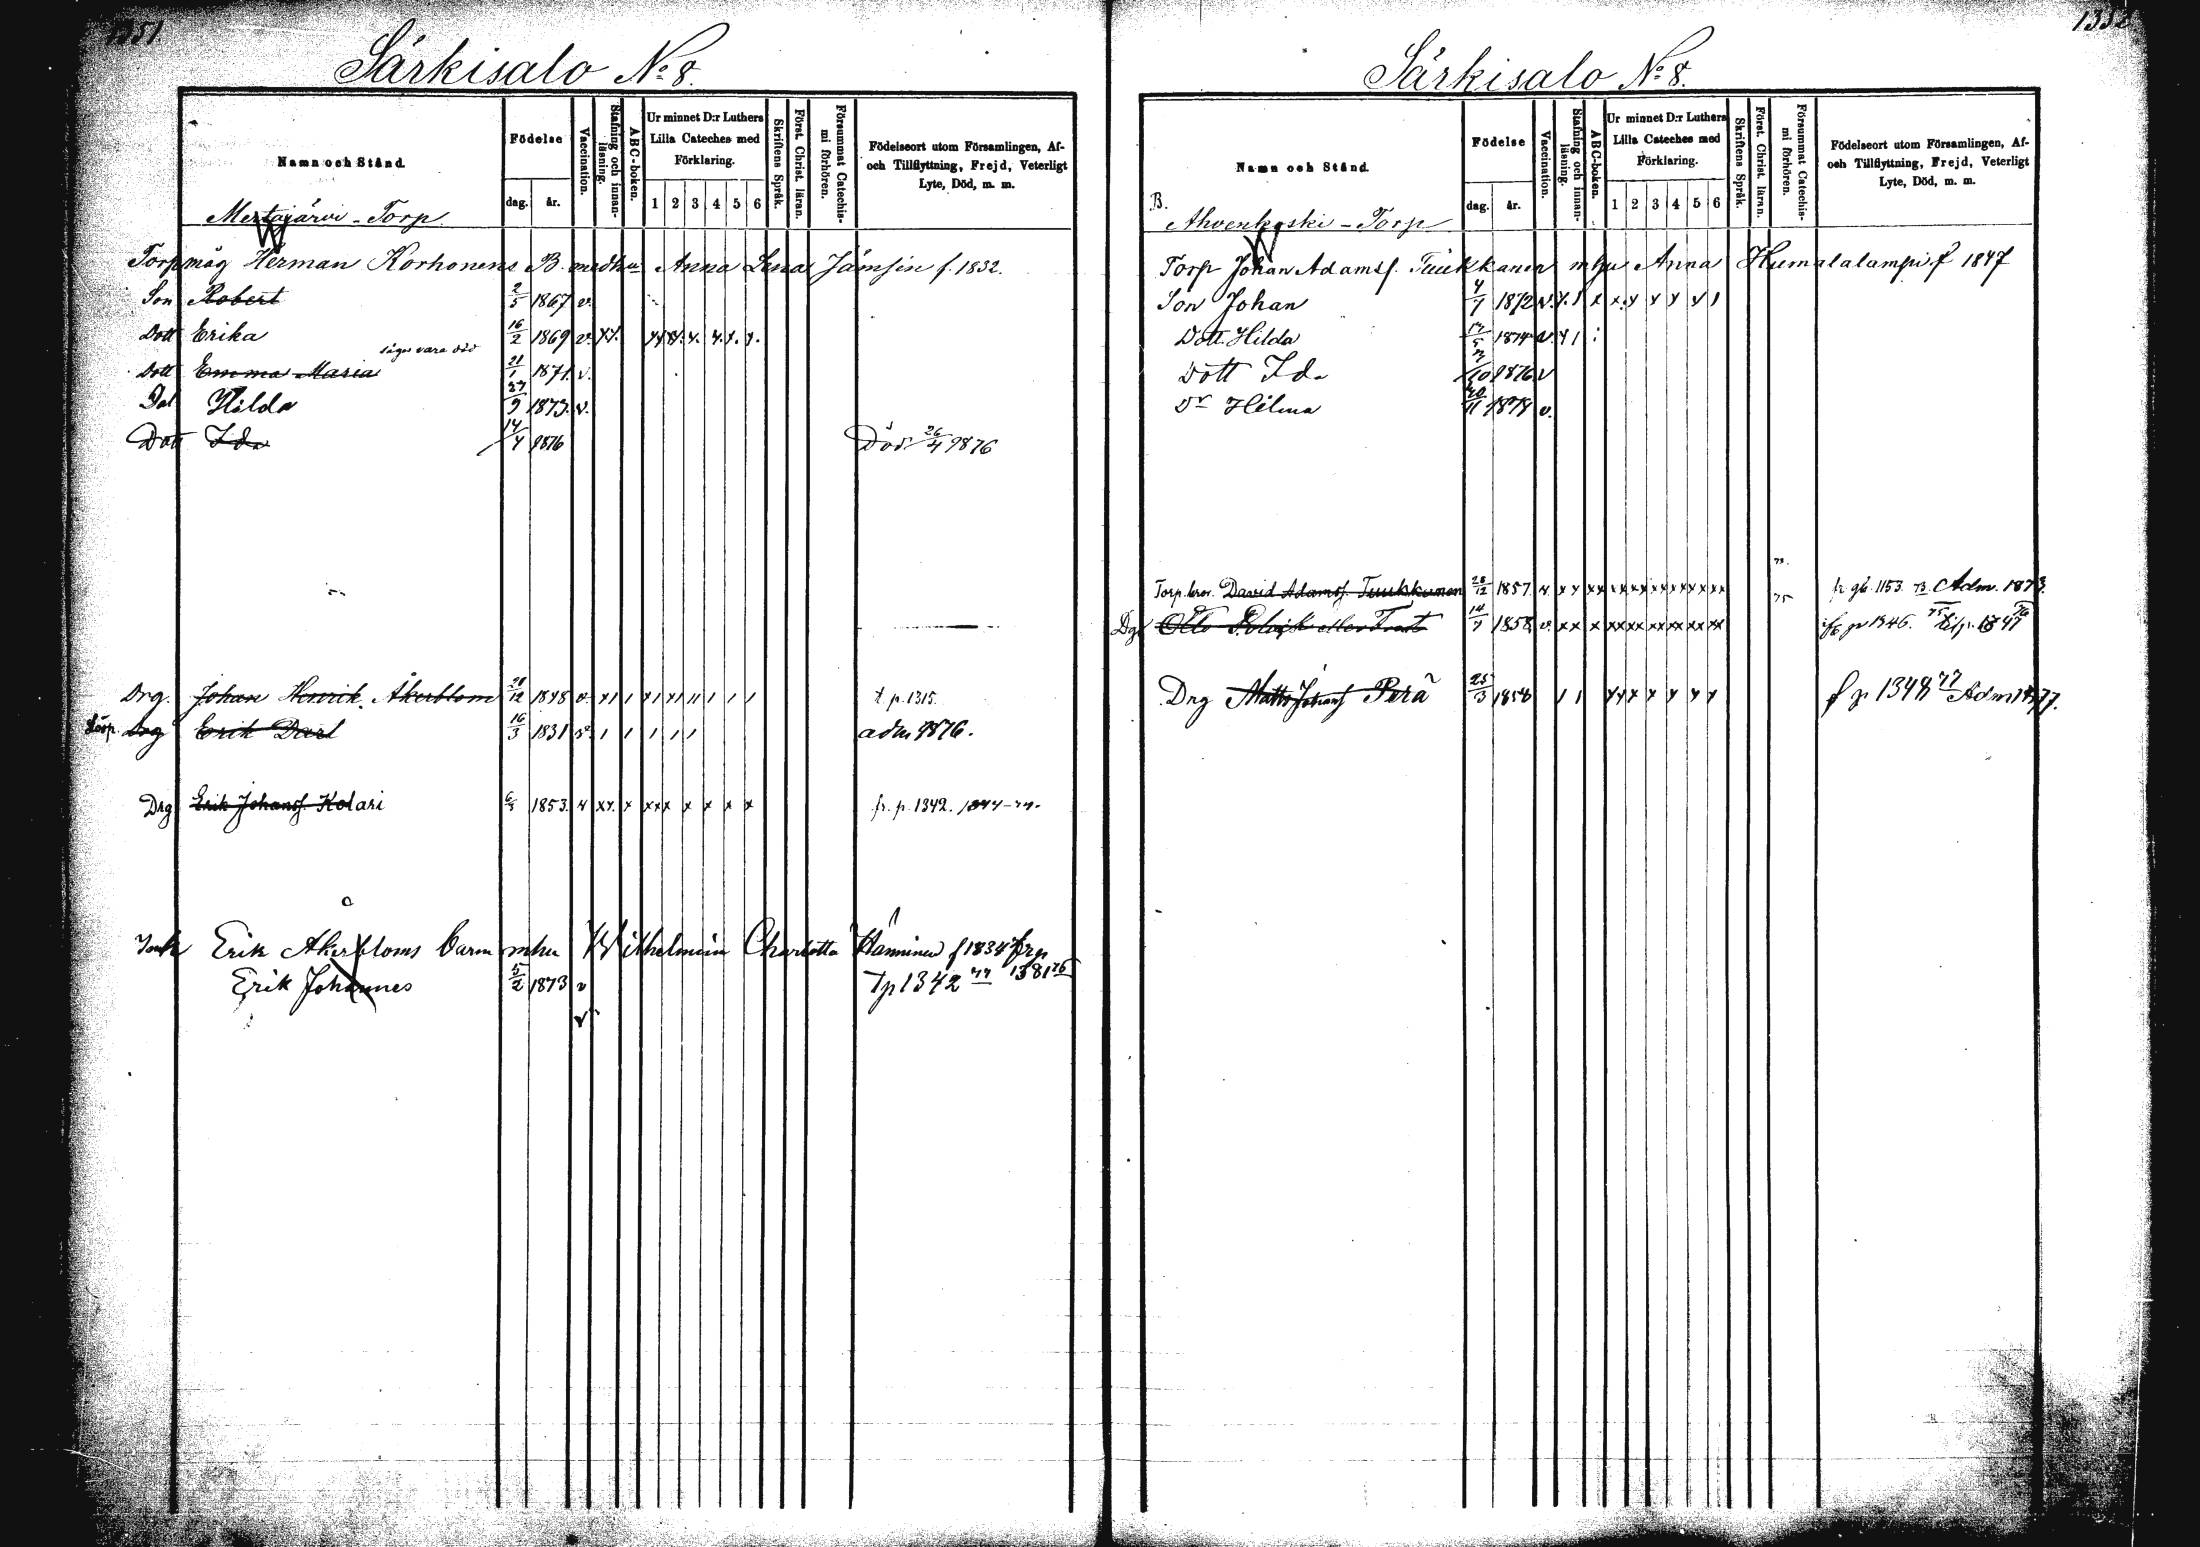 1351
Särkisalo No 8.
Namn och Stånd.
Födelse
dag. år.
Vaccination.
Stafning och innanläsning.
ABC-boken.
Ur minnet D:r Luthers Lilla Cateches med Förklaring.
1 2 3 4 5 6
Skriftens Språk.
Först. Christ. läran.
Försummat Catechismi förhören.
Födelseort utom Församlingen, Af- och Tillflyttning, Frejd, Veterligt Lyte, Död, m. m.
Mertajärvi - Torp
Torpmåg Herman Korhonens B. med hu Anna Lena Jämsin f. 1832.
Son Robert 2/5 1867 v.
Dott Erika 16/2 1869 v. x x. x x x x. x. x. x. x.
säges vara död
Dott Emma Maria 21/1 1871. v.
Dot Hilda 27/9 1873. v.
Dott Ida 14/4 1876 Död 26/4 1876
Drg. Johan Henrik Åkerblom 21/12 1848 v t. p. 1315.
Drg Erik Dael 16/3 1831 adm 1876.
Drg Erik Johansf Kolari 1853. x x x. x x x x x x x x fr. p. 1342.
Erik Åkerbloms barn mhu Wilhelmina Charlotta Hänninen f 1834 frp 1381 76
Erik Johannes 5/2 1873 v Tp 1342 77
v
1352
Särkisalo No 8.
Namn och Stånd.
Födelse
dag. år.
Vaccination.
Stafning och innanläsning.
ABC-boken.
Ur minnet D:r Luthers Lilla Cateches med Förklaring.
1 2 3 4 5 6
Skriftens Språk.
Först. Christ. läran.
Försummat Catechismi förhören.
Födelseort utom Församlingen, Af- och Tillflyttning, Frejd, Veterligt Lyte, Död, m. m.
B.
Ahvenkoski - Torp
Torp Johan Adamsf. Tuukkanen mhu Anna Humalalampi f 1847
Son Johan 4/7 1872 v.
Dott Hilda 1874 v
Dott Ida /10 1876 v
Dr Hilma 20/11 1878 v.
73.
Torp. bror. David Adamsf. Tuukkanen 28/12 1857. 75 fr gb. 1153. 73. Adm. 1873.
Drg Otto 14/7 1858 v. x x x x x x x x x x x x x fr p 1346. 75
Drg Matts Johansf Perä 25/3 1858 f p 1348 77 Adm 1877.